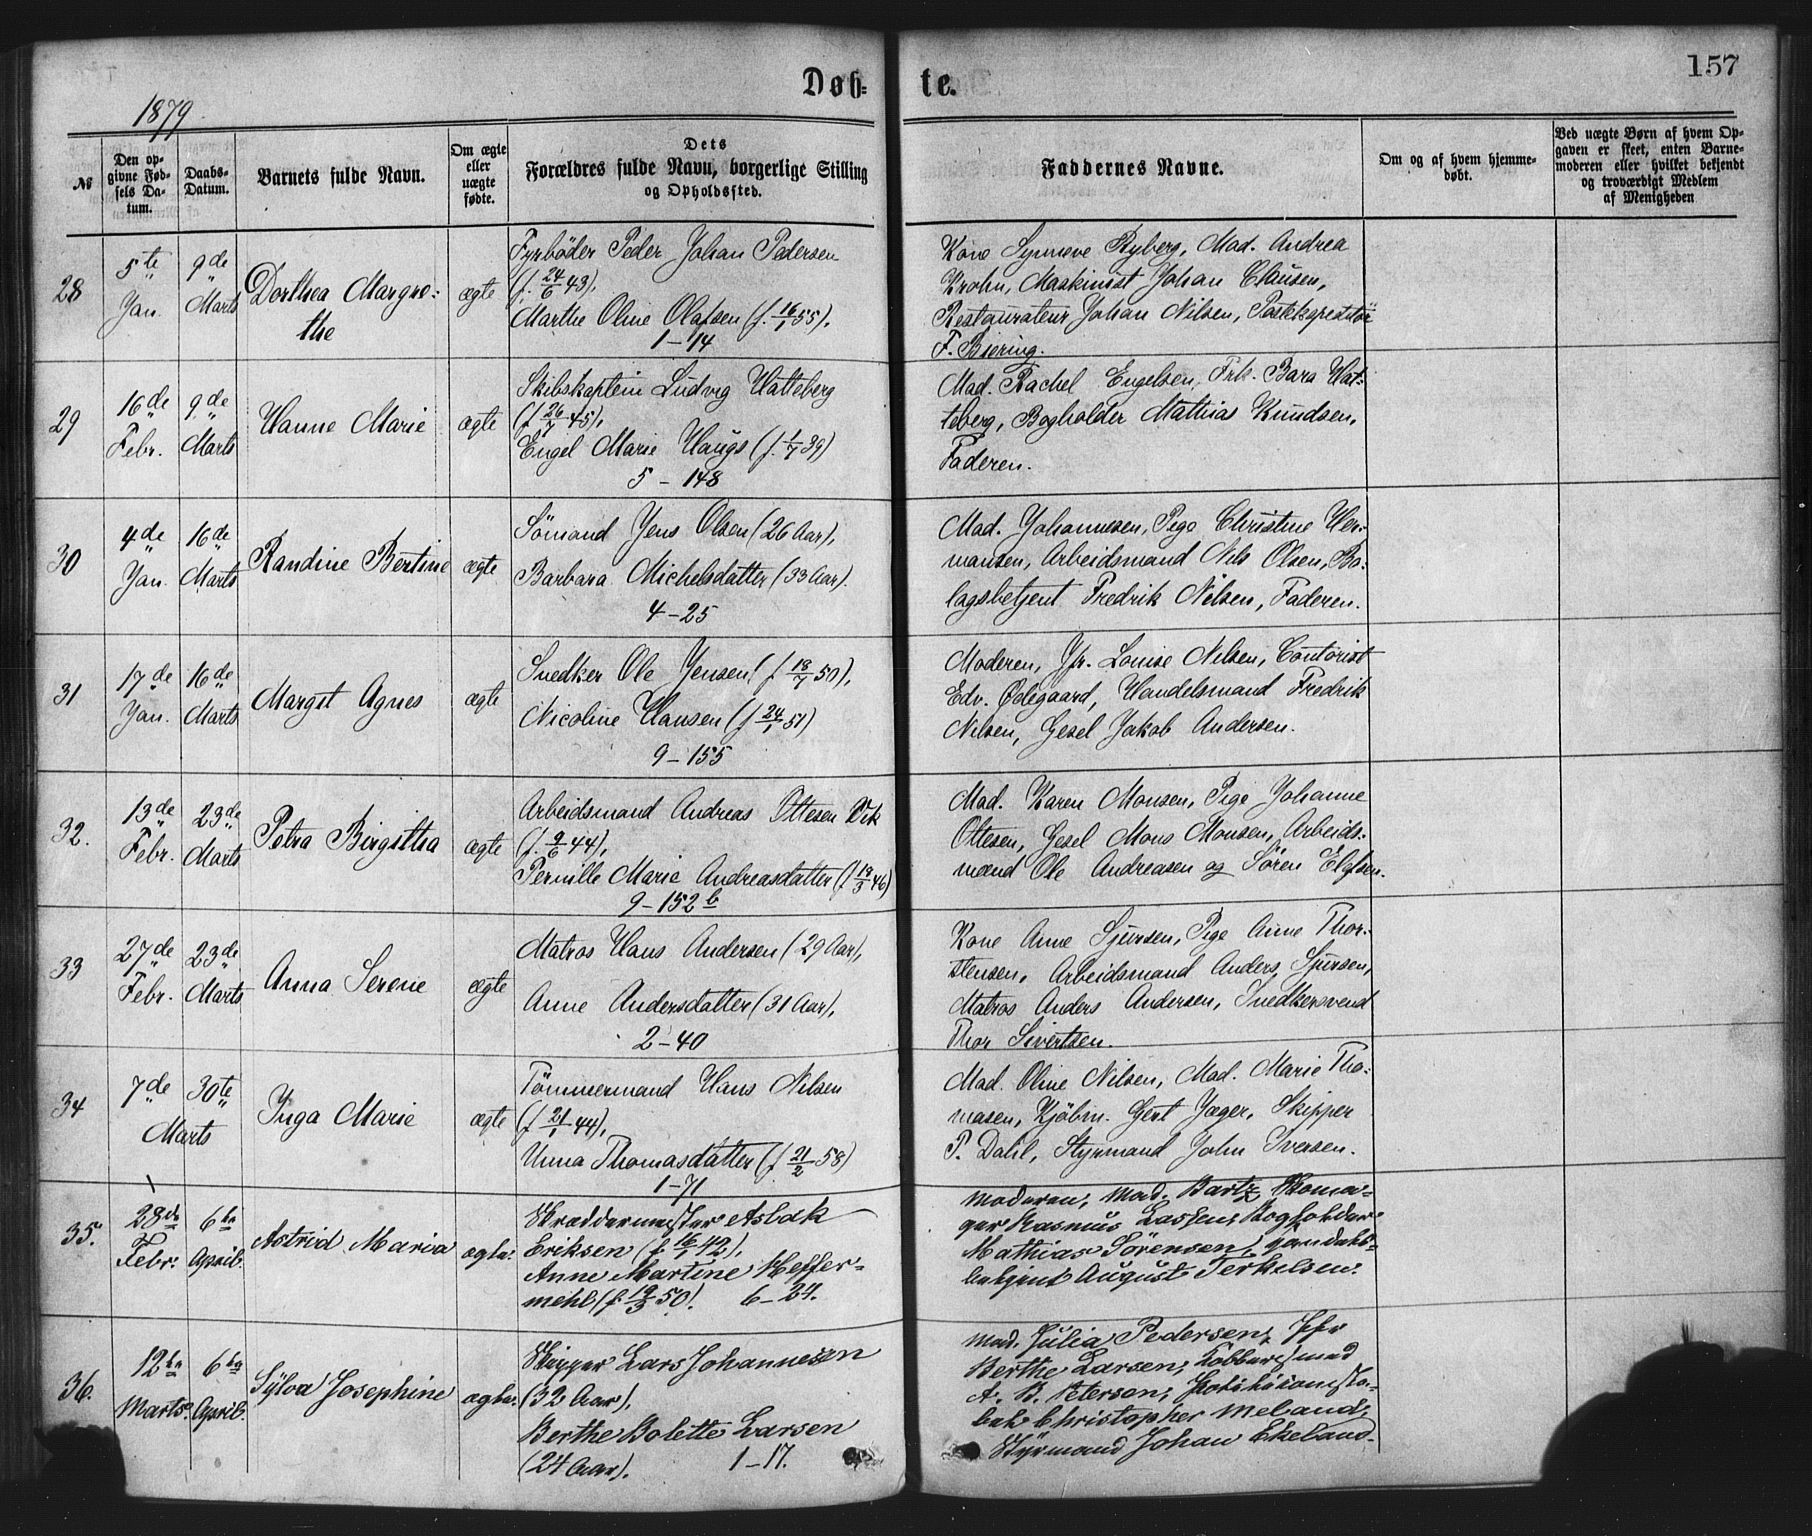 Døb=
te.
157
1879
№
Den op=
givne Fød=
sels Da=
tum.
Daabs=
Datum.
Barnets fulde Navn.
Om ægte
eller
uægte
fødte.
Dets
Forældres fulde Navn, borgerlige Stilling
og Opholdssted.
Faddernes Navne.
Om og af hvem hjemme=
døbt.
Ved uægte Børn af hvem Op=
gaven er skeet, enten Barne=
moderen eller hvilket bekjendt
og troværdigt Medlem
af Menigheden
28
5te
Jan.
9de
Marts
Dorthea Margre=
the
ægte
Fyrbøder Peder Johan Pedersen
(f. 24/6 43),
Marthe Oline Olafsen (f. 16/1 55).
1-14
Kone Synneve Ryberg, Mad. Andrea
Krohn, Maskinist Johan Clausen,
Restaurateur Johan Nilsen, Postexpeditör
F. Biering.
29
16de
Febr.
9de
Marts
Hanne Marie
ægte
Skibskaptein Ludvig Hatteberg
(f 26/7 45),
Engel Marie Haugs (f. 1/7 39)
5-148
Mad. Rachel Engelsen, Frk. Bara Hat=
teberg, Bogholder Mathias Knudsen,
Faderen.
30
4de
Jan.
16de
Marts
Randine Bertine
ægte
Sömand Jens Olsen (26 Aar),
Barbara Michelsdatter (33 Aar).
4-25
Mad. Johannesen, Pige Christine Her=
mansen, Arbeidsmand Nels Olsen, Bo=
lagsbetjent Fredrik Nilsen, Faderen.
31
17de
Jan.
16de
Marts
Margit Agnes
ægte
Snedker Ole Jensen (f 18/7 50),
Nicoline Hansen (f 24/1 51)
9-155
Moderen, Jfr. Louise Nilsen, Contorist
Edv. Ødegaard, Handelsmand Fredrik
Nilsen, Gesel Jakob Andersen.
32.
13de
Febr.
23de
Marts
Petra Birgitha
ægte
Arbeidsmand Andreas Ottesen Vik
(f. 9/6 44),
Pernille Marie Andreasdatter (f 18/3 46)
9-152 b
Mad. Karen Monsen, Pige Johanne
Ottesen, Gesel Mons Monsen, Arbeids=
mænd Ole Andreasen og Sören Elefsen.
33
27de
Febr.
23de
Marts
Anna Serene
ægte
Matros Hans Andersen (29 Aar),
Anne Andersdatter (31 Aar),
2-40
Kone Anne Sjursen, Pige Anne Thor=
stensen, Arbeidsmand Anders Sjursen,
Matros Anders Andersen, Snedkersvend
Thor Sivertsen.
34
7de
Marts
30te
Inga Marie
ægte
Tömmermand Hans Nilsen
(f. 21/1 44),
Unna Thomasdatter (f 21/2 58)
1-71
Mad. Oline Nilsen, Mad. Marie Tho=
masen, Kjöbm. Gert Jæger, Skipper
P. Dahl, Styrmand John Iversen.
35.
28de
Febr.
6te
April.
Astrid Maria
ægte.
Skræddermester Asbak
Eriksen (f. 16/7 42),
Anne Martine Heffer=
mehl (f. 19/3 50).  6-24.
Moderen, Mad. Bartz, Skoma=
ger Rasmus Lassen, Bogholder
Mathias Sörensen, Handels=
betjent August Terkelsen.
36.
12te
Marts.
6te
April.
Sylva Josephine
ægte.
Skipper Lars Johannesen
(32 Aar),
Berthe Bolette Larsen
(24 Aar).  1-17.
Mad. Julia Pedersen, Jfr
Berthe Larsen, Kobbersmed
A. B. Petersen,
Christopher Meland,
Styrmand Johan Ekeland.